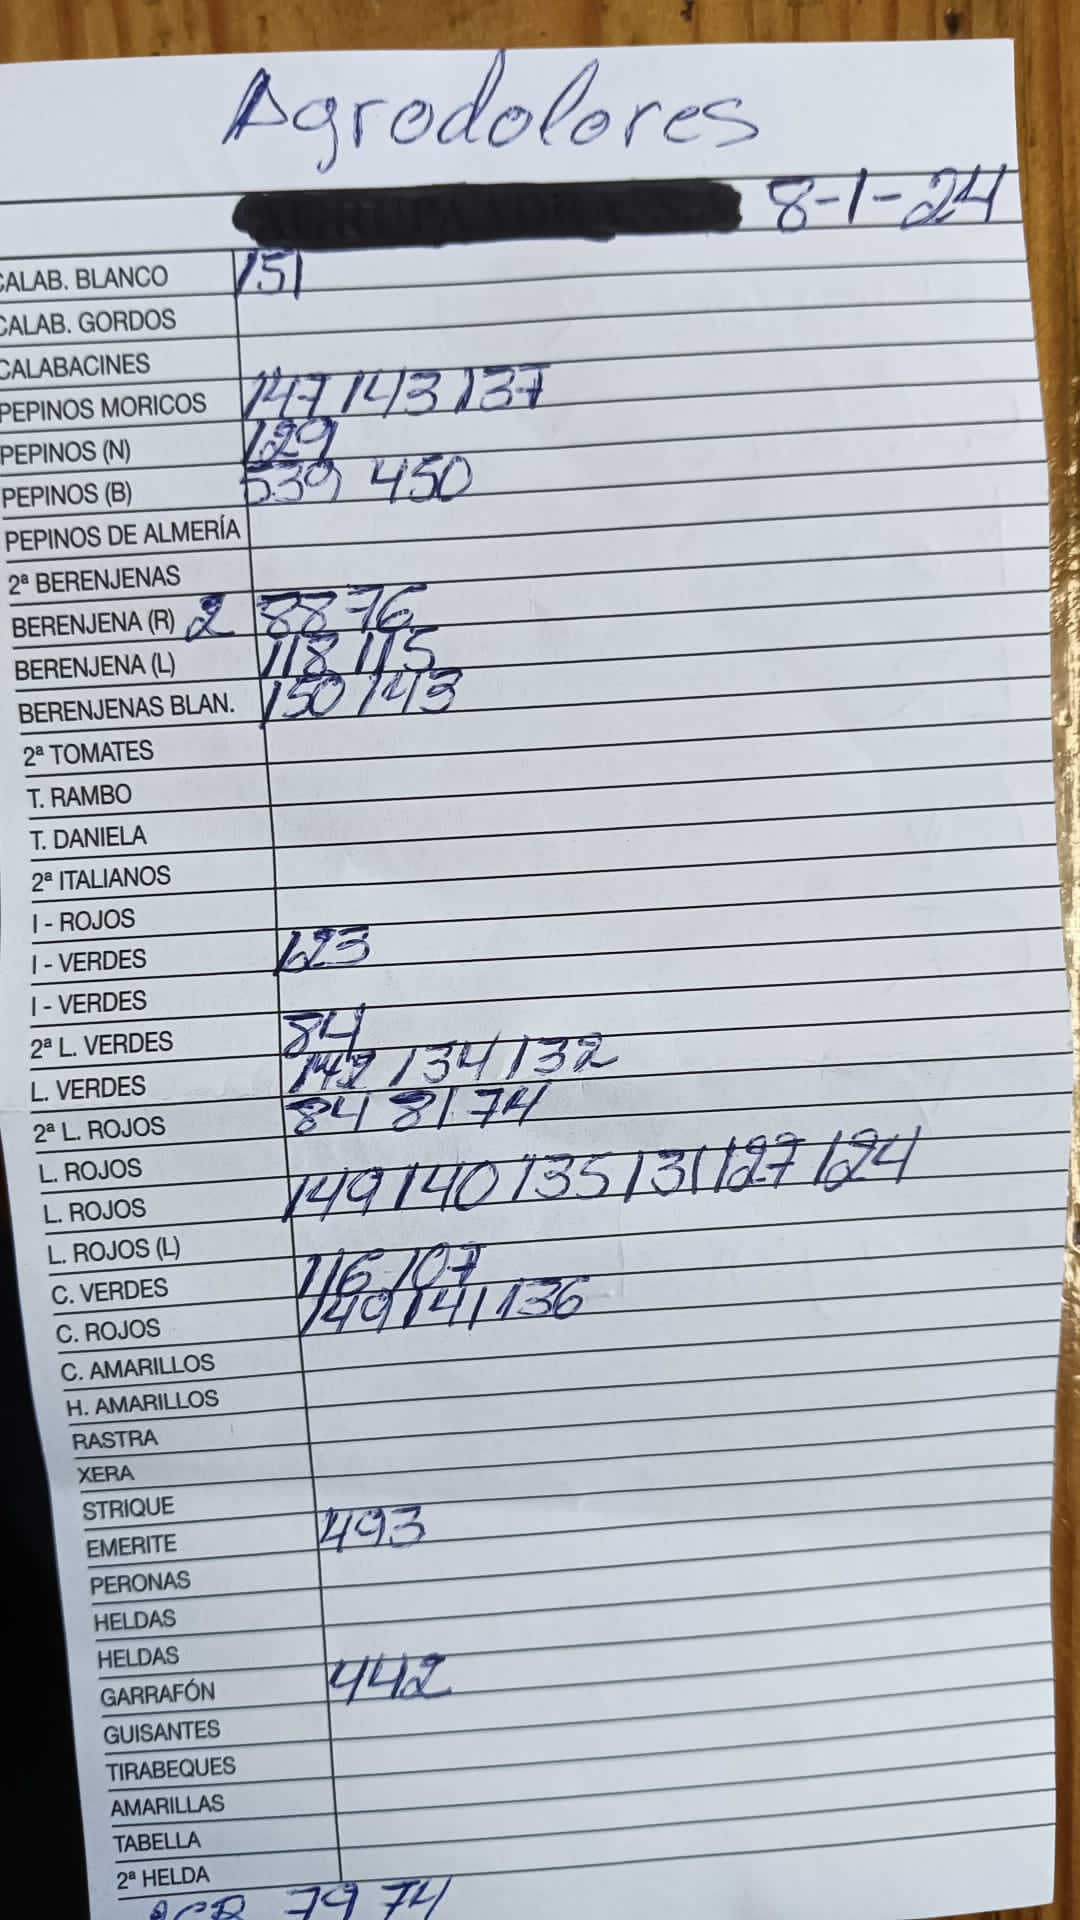 Agrodolores
8-1-24
CALAB. BLANCO 151
CALAB. GORDOS
CALABACINES
PEPINOS MORICOS 147 143 137
PEPINOS (N) 129
PEPINOS (B) 539 450
PEPINOS DE ALMERÍA
2ª BERENJENAS
BERENJENA (R) 2 88 76
BERENJENA (L) 118 115
BERENJENAS BLAN. 150 143
2ª TOMATES
T. RAMBO
T. DANIELA
2ª ITALIANOS
I - ROJOS
I - VERDES 623
I - VERDES
2ª L. VERDES 84
L. VERDES 142 134 132
2ª L. ROJOS 84 81 74
L. ROJOS
L. ROJOS 149 140 135 131 127 124
L. ROJOS (L)
C. VERDES 116 107
C. ROJOS 149 141 136
C. AMARILLOS
H. AMARILLOS
RASTRA
XERA
STRIQUE
EMERITE 493
PERONAS
HELDAS
HELDAS
GARRAFÓN 442
GUISANTES
TIRABEQUES
AMARILLAS
TABELLA
2ª HELDA
79 74